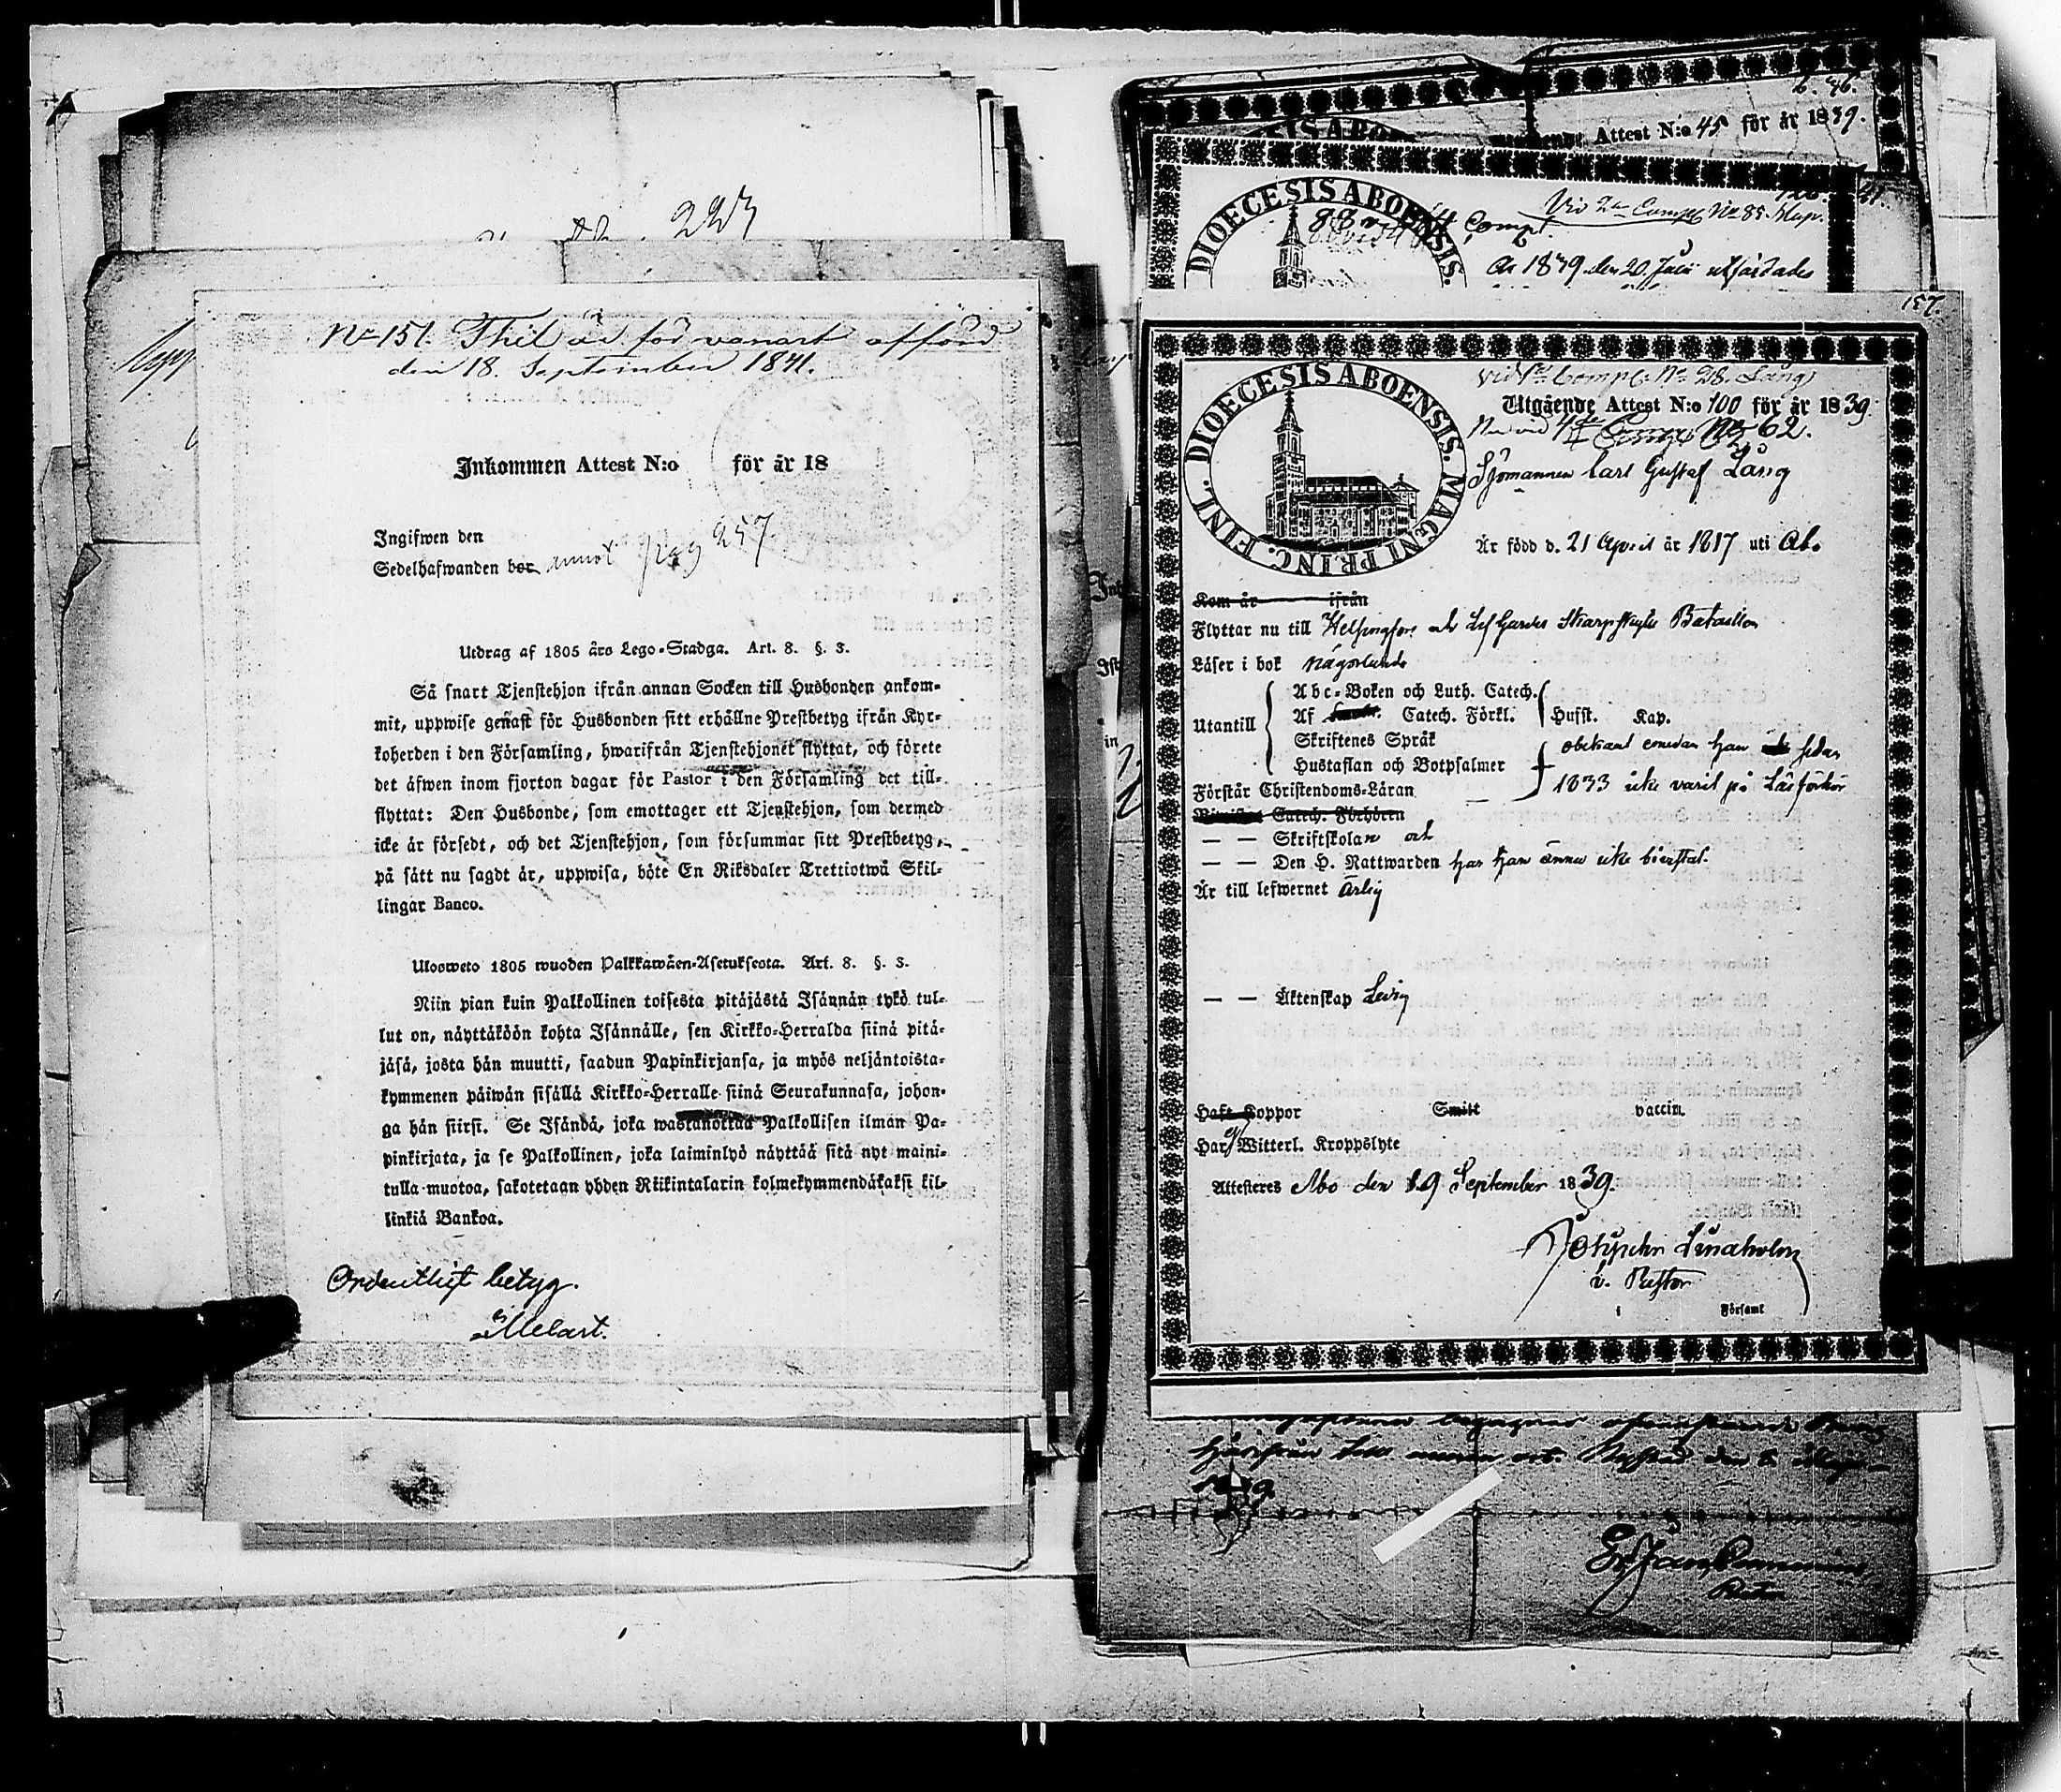 227
No 151. Thil är för vanart afförd
den 18. September 1841.
Inkommen Attest N:o för år 18
Ingifwen den
Sedelhafwanden bor annot pag 257.
Utdrag af 1805 års Lego-Stadga. Art. 8. §. 3.
Så snart Tjenstehjon ifrån annan Socken till Husbonden ankom-
mit, uppwise genast för Husbonden sitt erhållne Prestbetyg ifrån Kyr-
koherden i den Församling, hwarifrån Tjenstehjonet flyttat, och förete
det äfwen inom fjorton dagar för Pastor i den Församling det till-
flyttat: Den Husbonde, som emottager ett Tjenstehjon, som dermed
icke är försedt, och det Tjenstehjon, som försummar sitt Prestbetyg,
på sätt nu sagdt är, uppwisa, böte En Riksdaler Trettiotwå Skil-
lingar Banco.
Ulosweto 1805 wuoden Palkkawäen-Asetuksesta. Art. 8. §. 3.
Niin pian kuin Palkollinen toisesta pitäjästä Isännän tykö tul-
lut on, näyttäköön kohta Isännälle, sen Kirkko-Herralda siinä pitä-
jäsä, josta hän muutti, saadun Papinkirjansa, ja myös neljäntoista-
kymmenen päiwän sisällä Kirkko-Herralle siinä Seurakunnasa, johon-
ga hän siirsi. Se Isändä, joka wastanottaa Palkollisen ilman Pa-
pinkirjata, ja se Palkollinen, joka laiminlyö näyttää sitä nyt maini-
tulla muotoa, sakotetaan yhden Riikintalarin kolmekymmendäkaksi kil-
linkiä Bankoa.
Ordentligt betyg.
Melart.
b. 46.
Attest N:o 45 för år 1839.
DIOECESIS ABOENSIS.
Vid 2a Comp No 85. Klap.
Comp.
År 1839 den 20 Juli utfärdades
157.
DIOECESIS ABOENSIS. MAGNI PRINC. FINL.
Vid Comp: No 28. Lång
Utgående Attest N:o 100 för år 1839.
Nu vid 4de Comp No 62.
Sjömannen Carl Gustaf Lång
Är född d. 21 April år 1817 uti Åbo
Kom år ifrån
Flyttar nu till Helsingfors och Lif Gardes Skarpskytte Bataillon
Läser i bok någorlunda
Utantill
Abc-Boken och Luth. Catech.
Af Catech. Förkl. Hufst. Kap.
Skriftenes Språk
Hustaflan och Botpsalmer
obekant emedan han sedan
1833 icke varit på Läsförhör
Förstår Christendoms-Läran
Catech. Förhören
— — Skriftskolan och
— — Den H. Nattwarden har han ännu icke bivistat.
Är till lefwernet ärlig
— — Äktenskap Ledig
Haft Koppor Smitt vaccin.
Har ej Witterl. Kroppslyte
Attesteres Åbo den 19 September 1839.
Lindholm
v. Pastor
i Församl